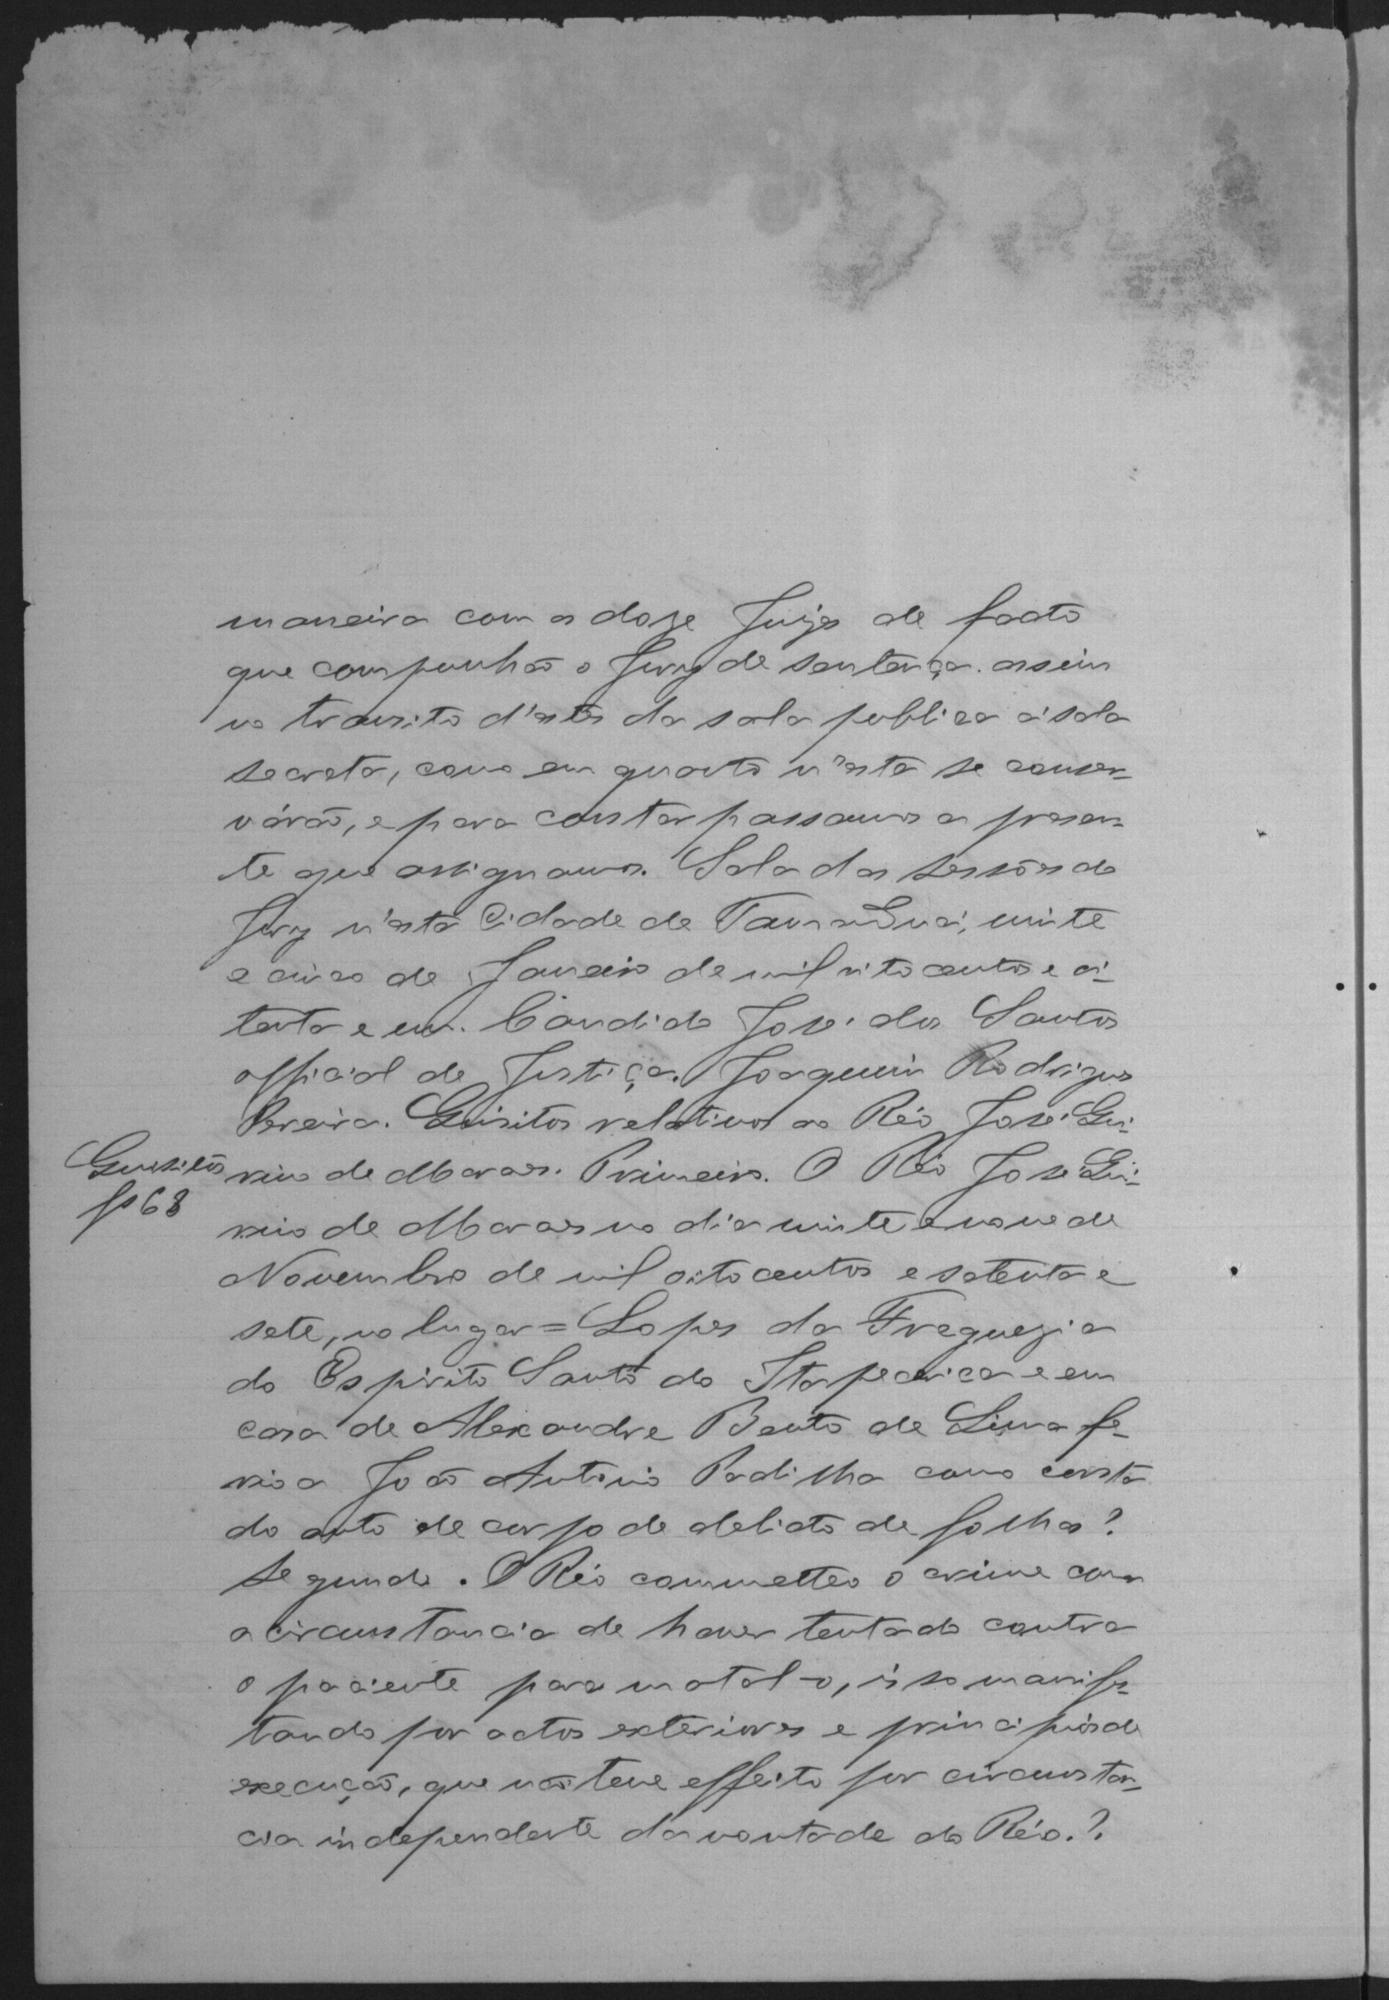 maneira com os doze Juizes de facto
que compunhão o Jury de sentença. assim
no transito d'estes da sala publica á sala
secreta, como em quanto n'esta se conser-
várão, e para constar passamos a presen-
te que assignamos. Sala das sessões do
Jury n'esta Cidade de Tamanduá, vinte
e cinco de Janeiro de mil oito centos e oi-
tenta e um. Candido José dos Santos
official de Justiça. Joaquim Rodrigues
Pereira. Quisitos relativos ao Réo José Qui-
Quesitos
fs 68
rino de Moraes. Primeiro. O Réo José Qui-
rino de Moraes no dia vinte e nove de
Novembro de mil oitocentos e setenta e
sete, no lugar = Lopes da Freguezia
do Espirito Santo do Itapecerica e em
casa de Alexandre Bento de Lima fe-
rio a João Antonio Padilha como consta
do auto de corpo de delicto de folhas?
Segundo. O Réo commetteo o crime com
a circunstancia de haver tentado contra
o paciente para matal-o, isso manifes-
tando por actos exteriores e principios de
execução, que não teve effeito por circunstan-
cia independente da vontade do Réo.?